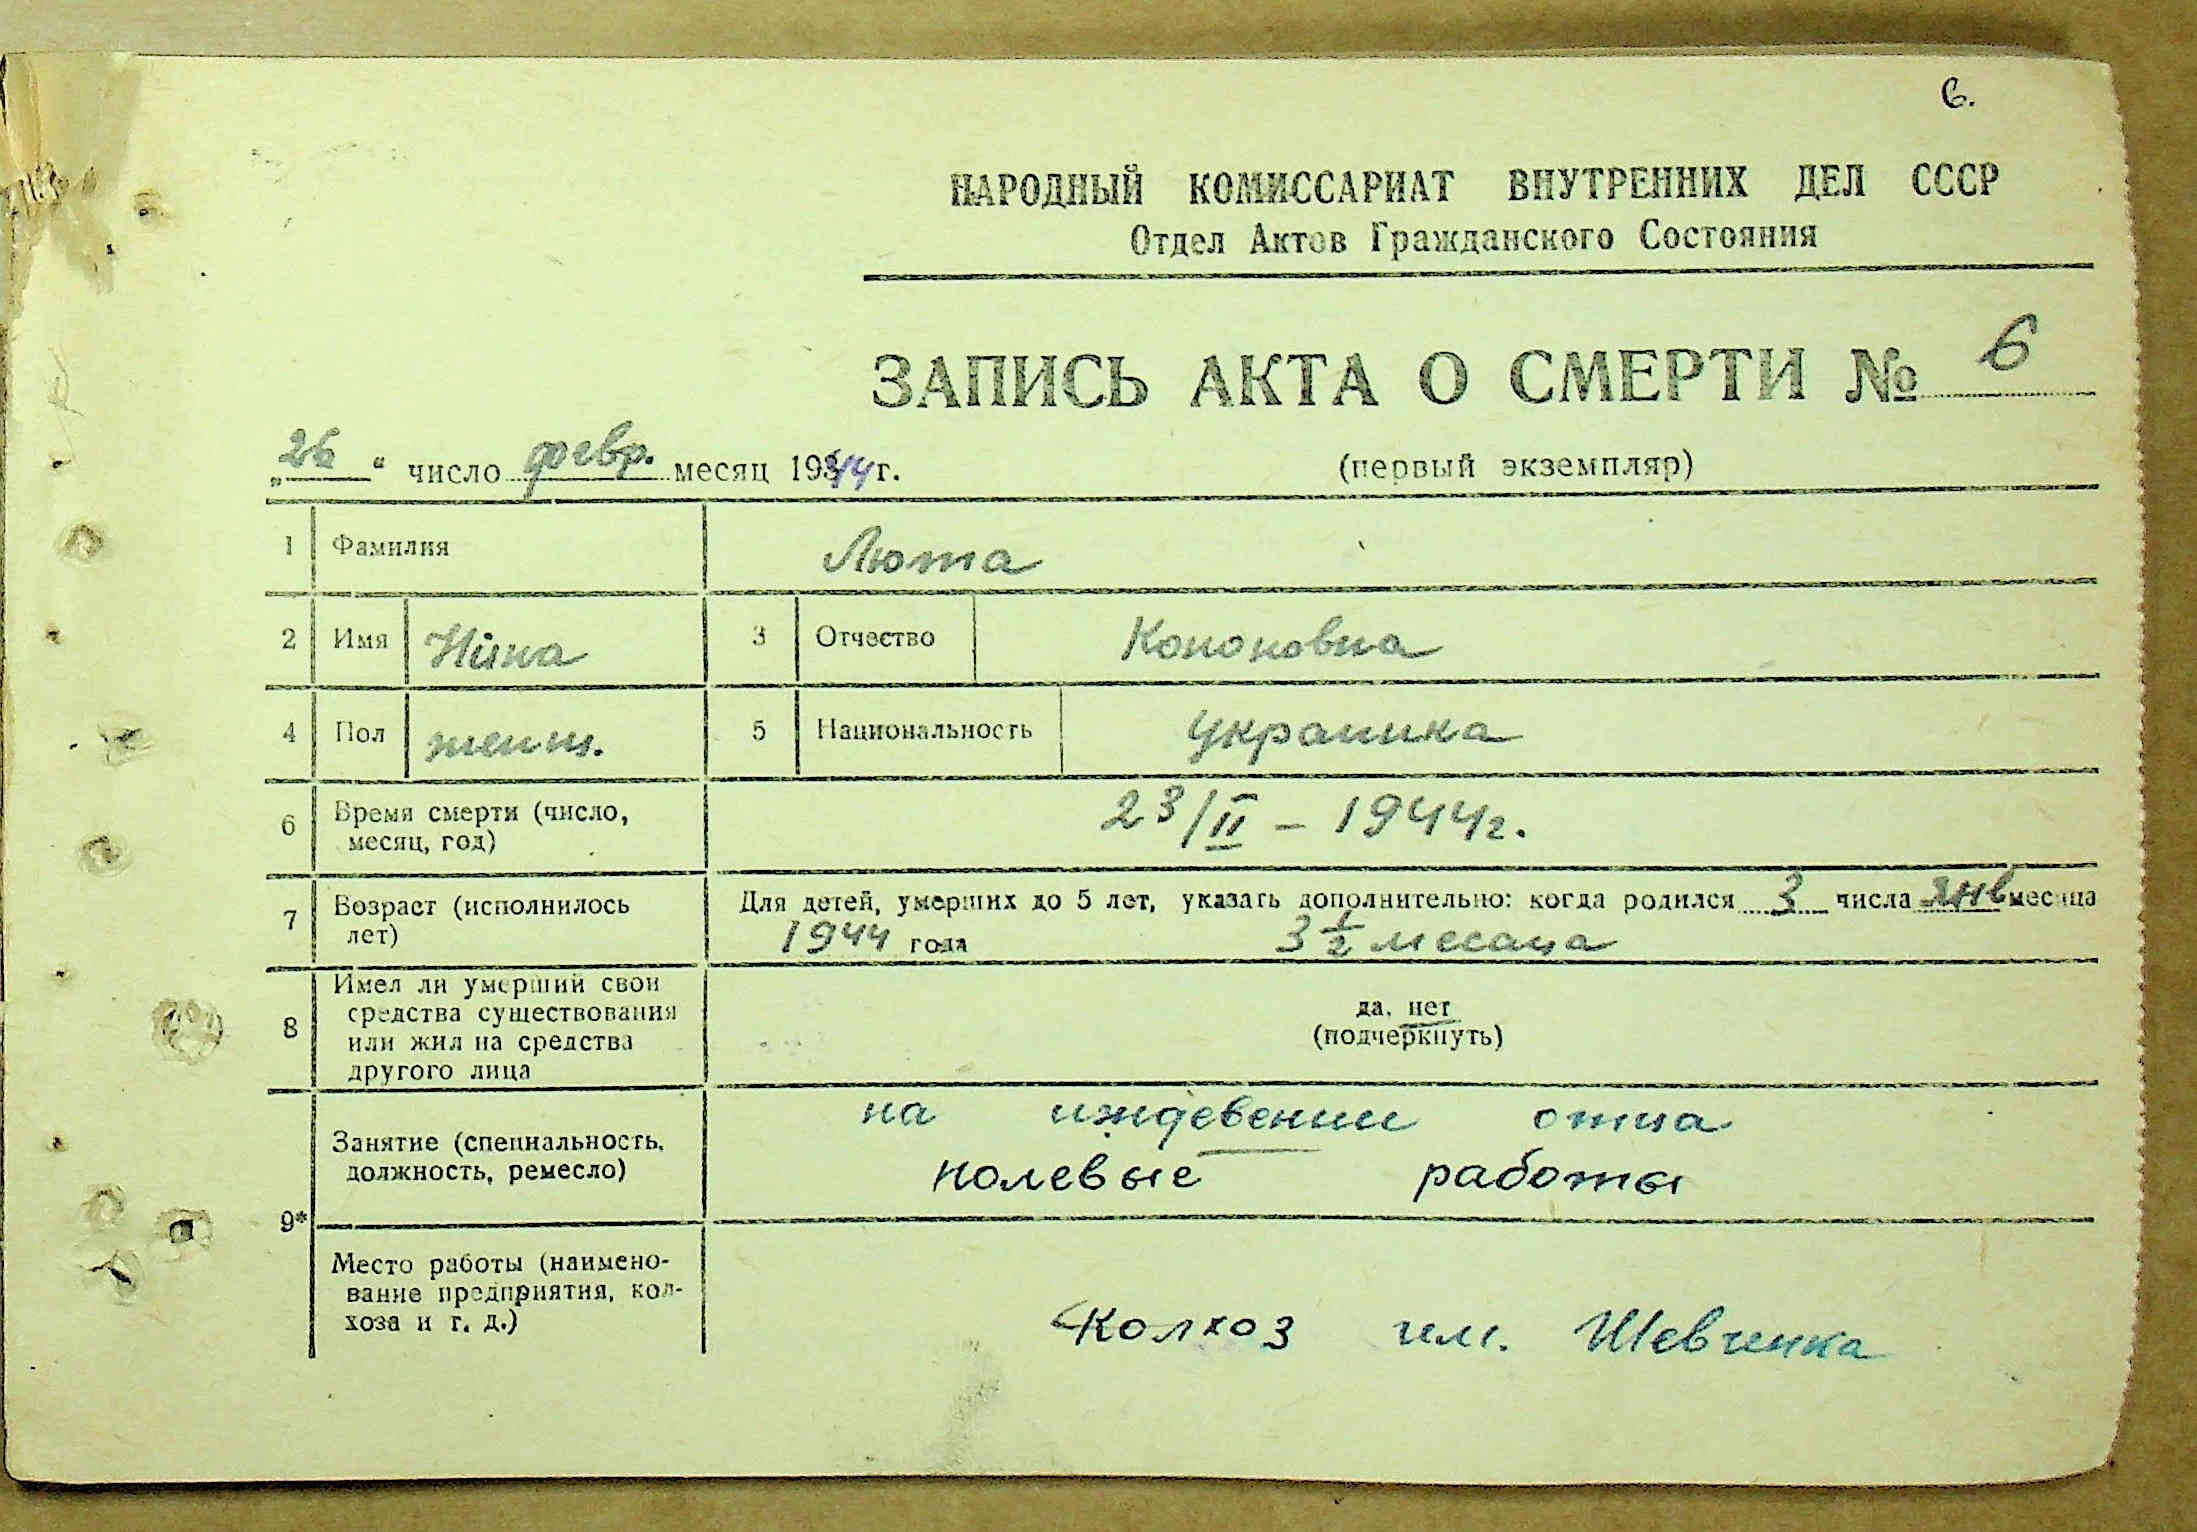 6.
НАРОДНЫЙ КОМИССАРИАТ ВНУТРЕННИХ ДЕЛ СССР
Отдел Актов Гражданского Состояния
ЗАПИСЬ АКТА О СМЕРТИ № 6
„26“ число февр. месяц 1944 г.
(первый экземпляр)
1 Фамилия Люта
2 Имя Нина 3 Отчество Кононовна
4 Пол женщ. 5 Национальность украинка
6 Время смерти (число, месяц, год) 23/II – 1944г.
7 Возраст (исполнилось лет) Для детей, умерших до 5 лет, указать дополнительно: когда родился 3 числа янв месяца
1944 года 3 1/2 месаца
8 Имел ли умерший свои средства существования или жил на средства другого лица да, нет
(подчеркнуть)
9* Занятие (специальность, должность, ремесло) на иждевении отца
полевые работы
Место работы (наименование предприятия, колхоза и т. д.) Колхоз им. Шевченка